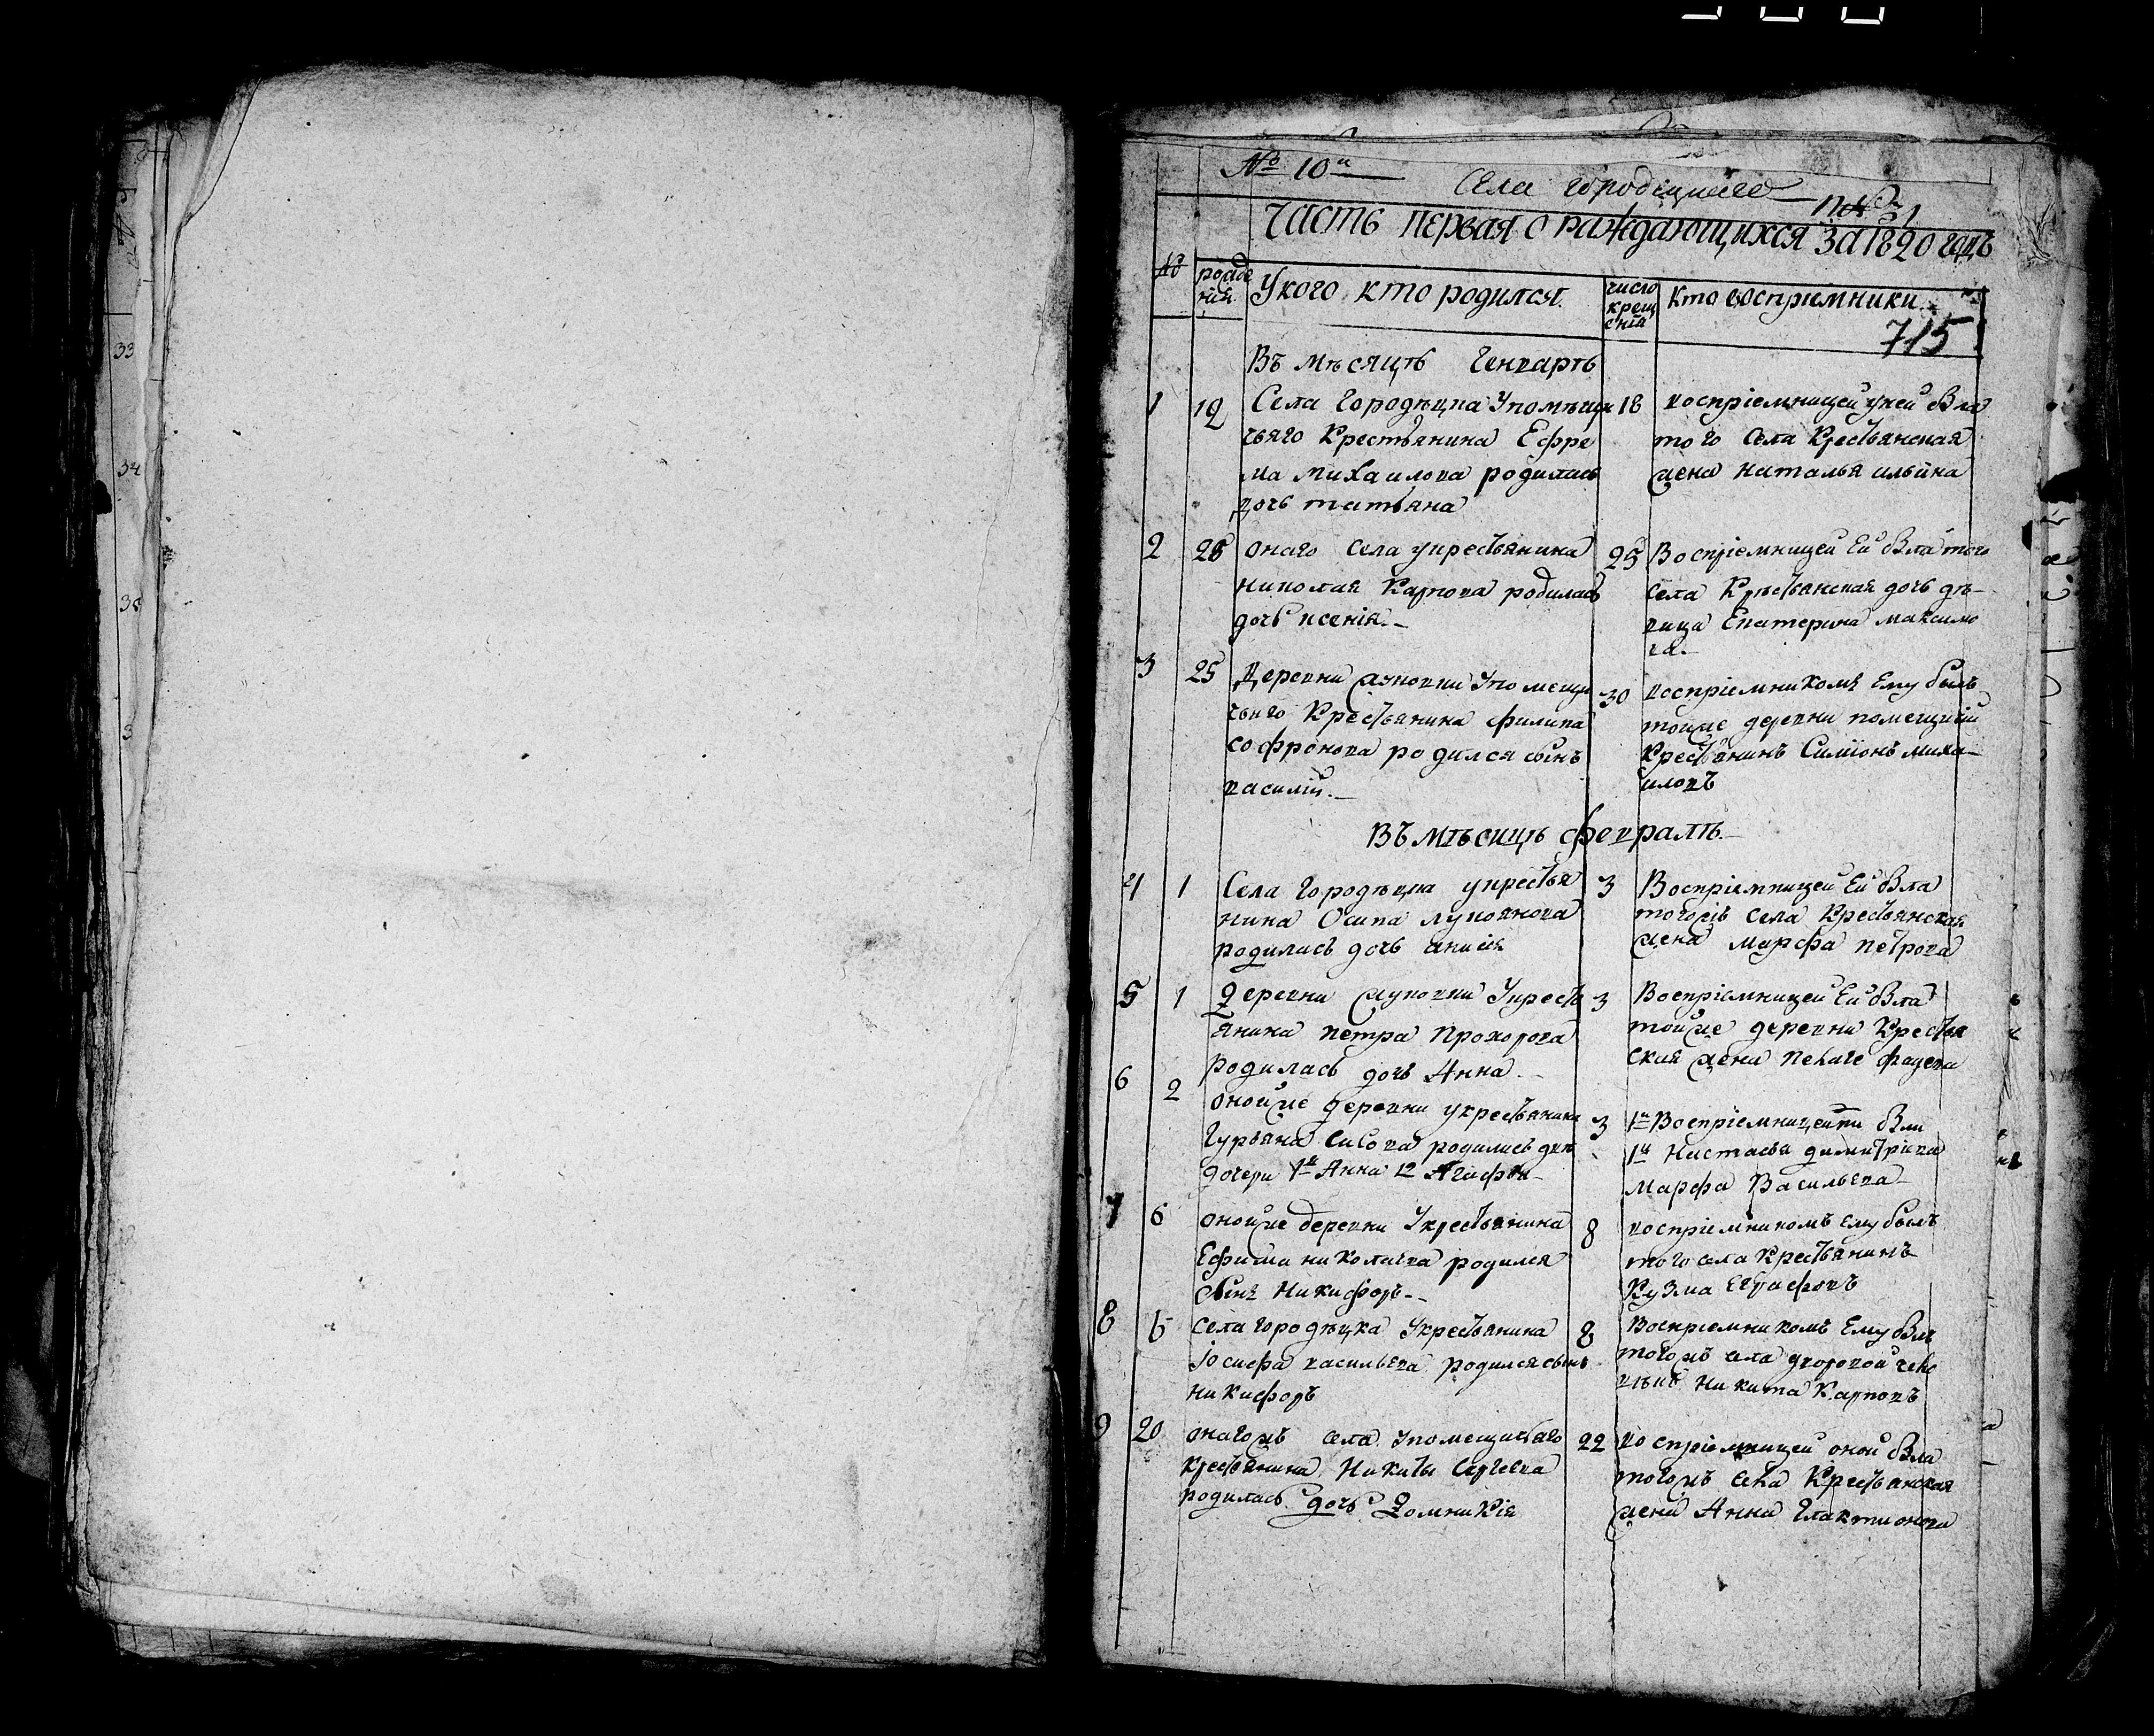 № 10й
Села городецкаго
Часть первая о раждающихся за 1820 годъ
№
рожде
нія
У кого кто родился.
число
крещ
енія
кто восприемники.
715
Въ мѣсяцѣ Генварѣ
1
12
Села Городѣцка у помѣщи
чьяго Крестьянина Ефре
ма Михаилова родилась
дочь татьяна
18
воспріемницей у ней была
того Села Крестьянская
жена наталья ильина
2
оного села у крестьянина
николая Карпова родилась
дочь ксенія.
25
Воспріемницей Ей была того
села Крестьянская дочь дѣ-
вица Екатерина максимо
ва.
3
25
Деревни у помещи
чьяго Крестьянина филипа
софронова родился сынъ
василій.
30
воспріемникомъ Ему былъ
тойже деревни помещичій
Крестьянинъ Симіонъ миха-
иловъ
Въ мѣсицѣ февралѣ.
4
1
Села Городѣцка у крестья
нина Осипа лукоянова
родилась дочь
3
Воспріемницей Ей была
тогожъ села Крестьянская
жена марфа петрова
5
1
Деревни у крестья
янина петра Прохорова
родилась дочь Анна.
3
Воспріемницей Ей была
тойже деревни Крестья
ская жена фадеева
6
2
онойже деревни у крестьянина
Гурьяна родились двѣ
дочери 1я Анна 12 Агафья
3
1я Воспріемницами были
1я Настасья димитріева
марфа Васильева
7
6
онойже деревни У крестьянина
Ефима николаева родился
сынъ Никифоръ.
8
воспріемникомъ ему былъ
того села Крестьянинъ
Кузма Евграфовъ
8
6
села городѣцка У крестьянина
Іосифа васильева родился сынъ
никифоръ
8
Воспріемникомъ Ему былъ
тогожъ села дворовой чело
вѣкъ Никита Карповъ
9
20
оногожъ села у помещичьяго
крестьянина Никиты Сергеева
родилась дочь Домникія
22
воспріемницей оной была
тогожъ села Крестьянская
жена Анна Глактионова
33
34